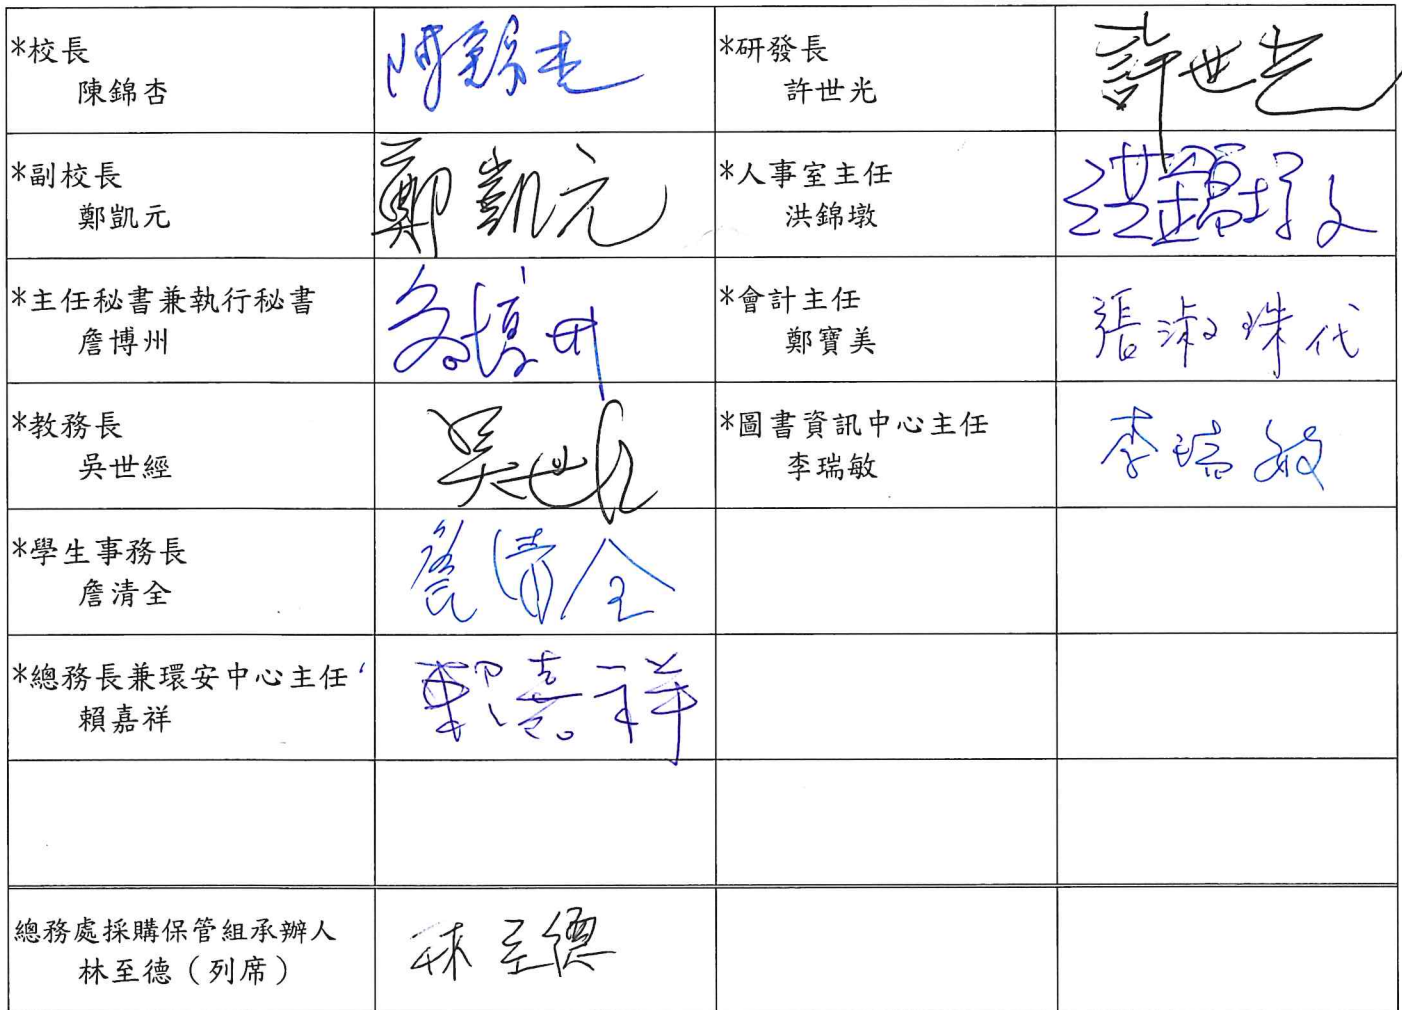 *校長
陳錦杏
陳錦杏
*研發長
許世光
許世光
*副校長
鄭凱元
鄭凱元
*人事室主任
洪錦墩
洪錦墩
*主任秘書兼執行秘書
詹博州
詹博州
*會計主任
鄭寶美
張淑珠代
*教務長
吳世經
吳世
*圖書資訊中心主任
李瑞敏
李瑞敏
*學生事務長
詹清全
詹清全
*總務長兼環安中心主任
賴嘉祥
賴嘉祥
總務處採購保管組承辦人
林至德（列席）
林至德